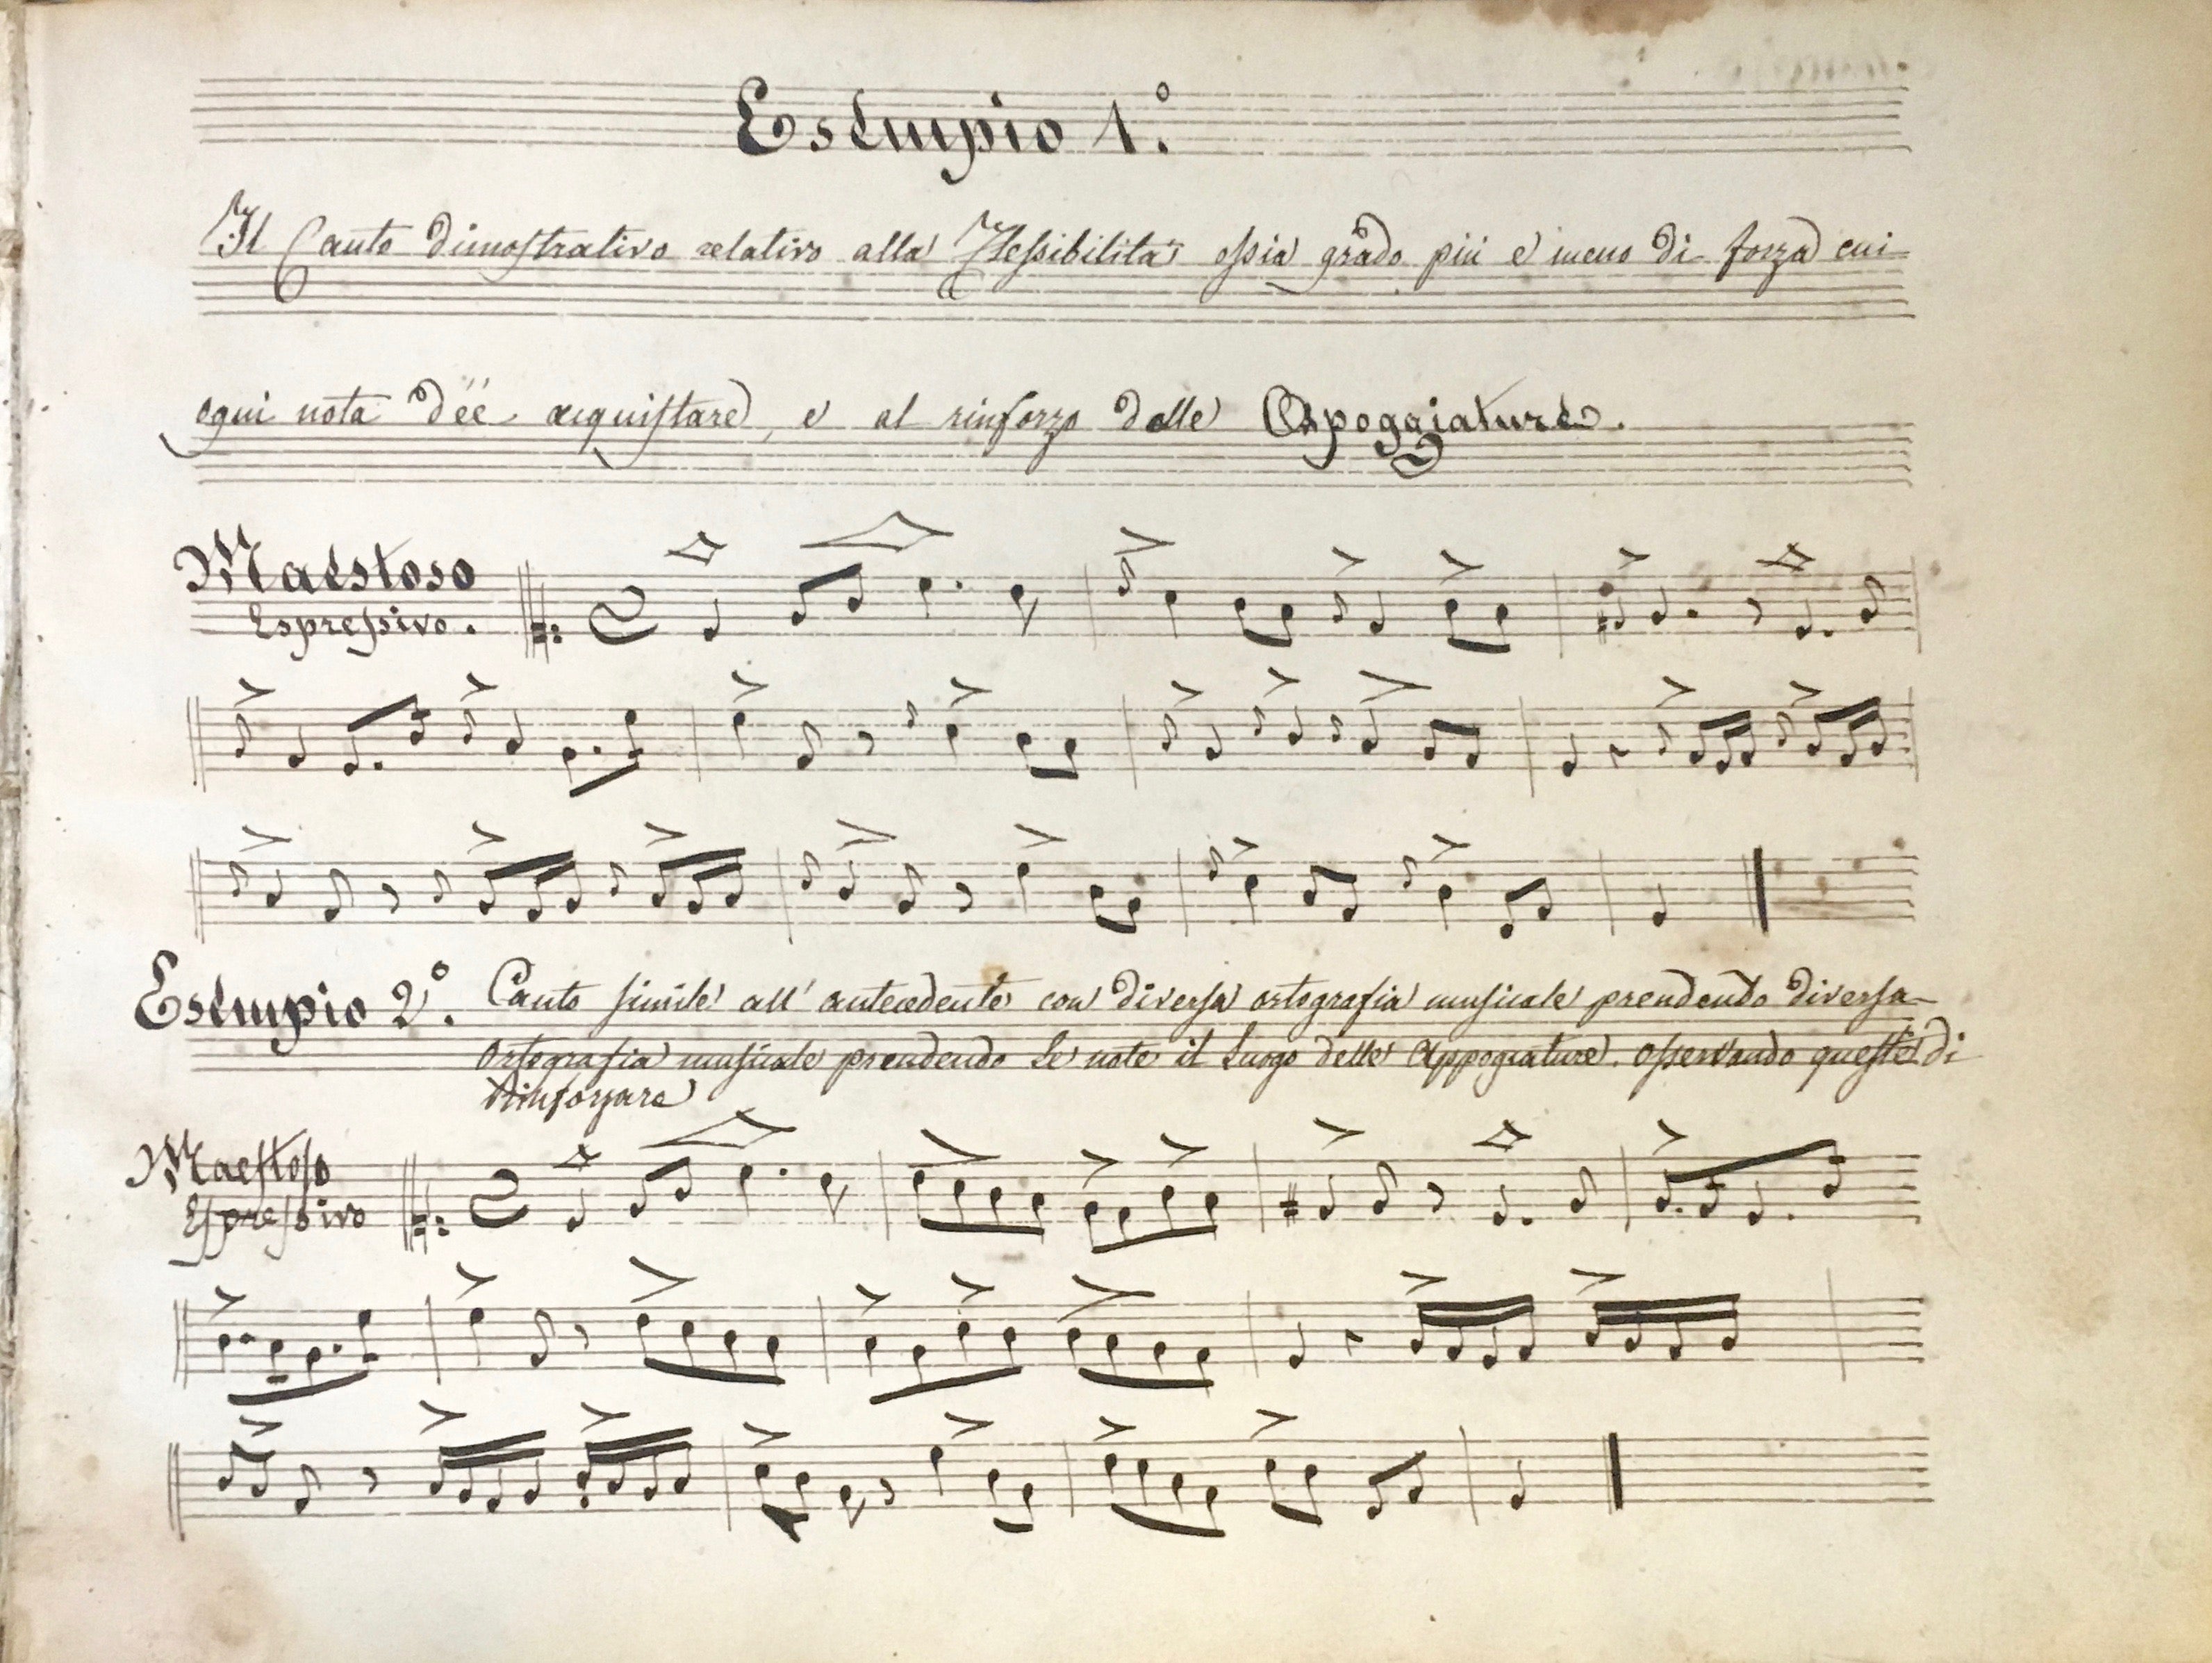 Esempio 1.º
Il Canto dimostrativo relativo alla Flessibilità ossia grado più e meno di forza cui
ogni nota dée acquistare, e al rinforzo delle Appoggiature.
Maestoso
Espressivo.
Esempio 2.º Canto simile all' antecedente con diversa ortografia musicale prendendo diversa
ortografia musicale prendendo le note il luogo delle Appogiature. osservando queste di
Rinforzare
Maestoso
Espressivo